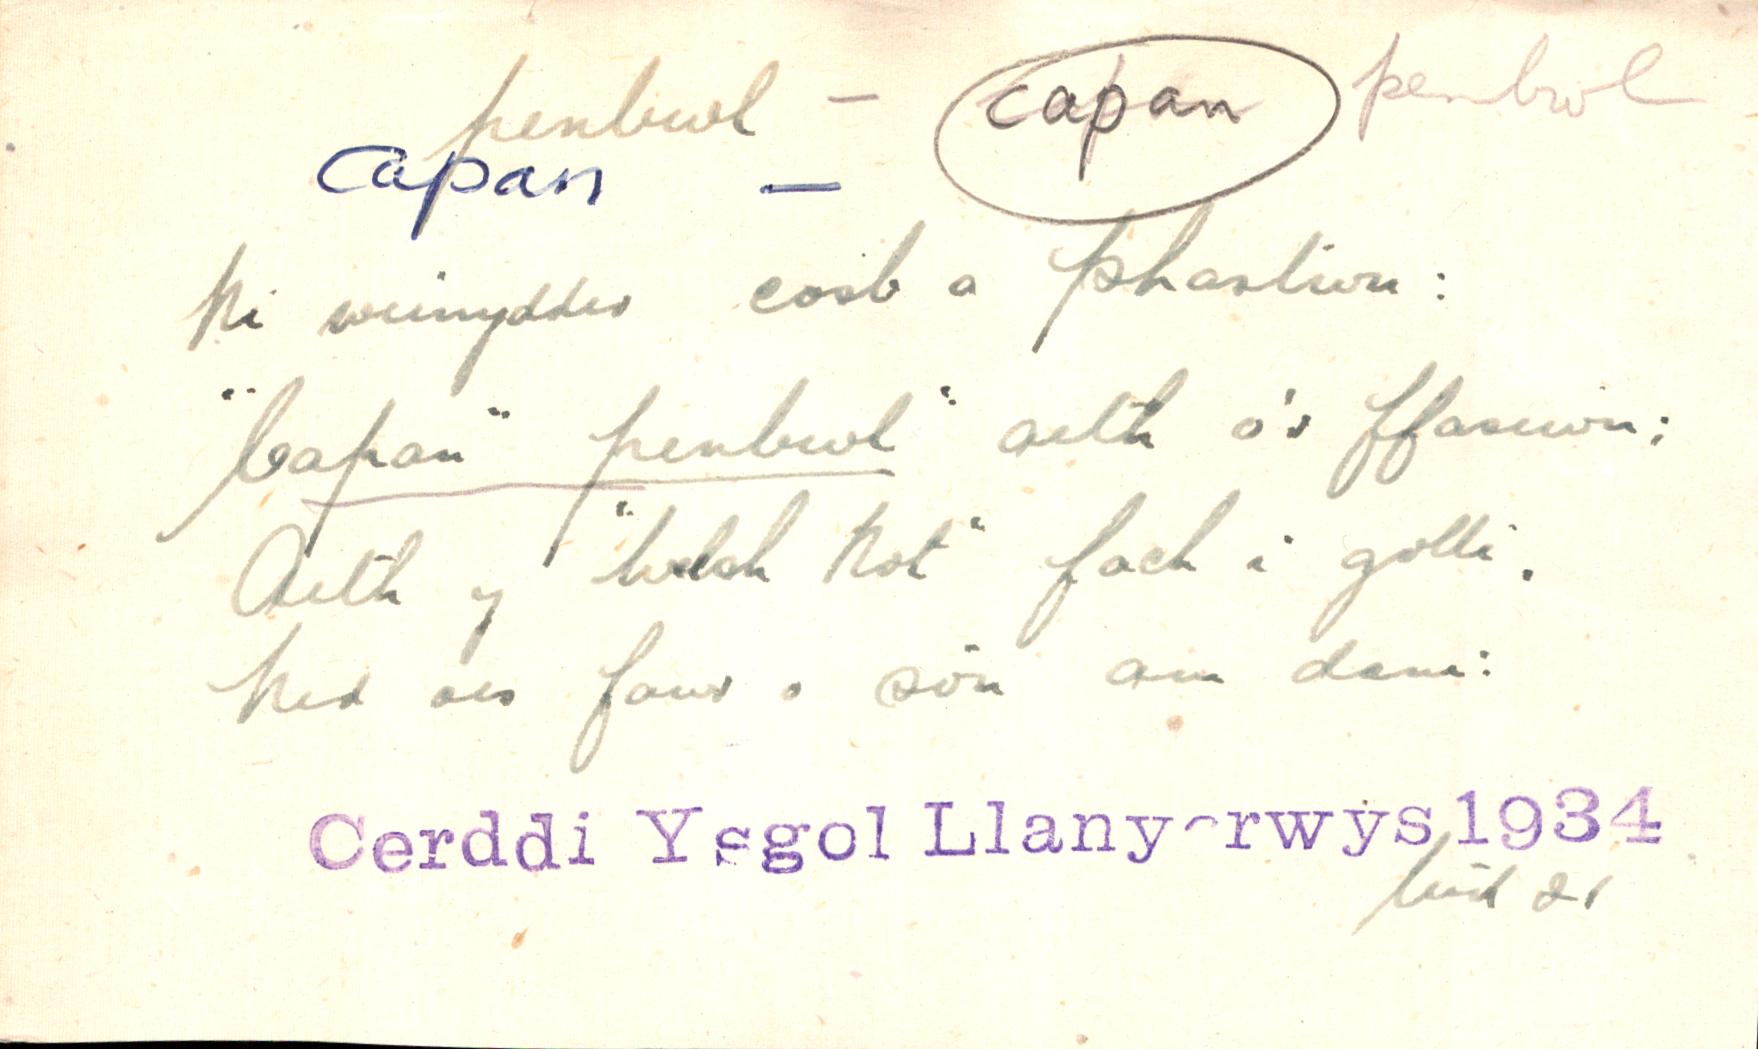 penbwl – capan penbwl
capan –
Ni weinydder cosb a phastwn:
"Capan" penbwl" aeth o'r ffasiwn;
Aeth y "Welsh Not" fach i golli.
Nid oes fawr o sôn am dani:
Cerddi Ysgol Llanycrwys 1934
21